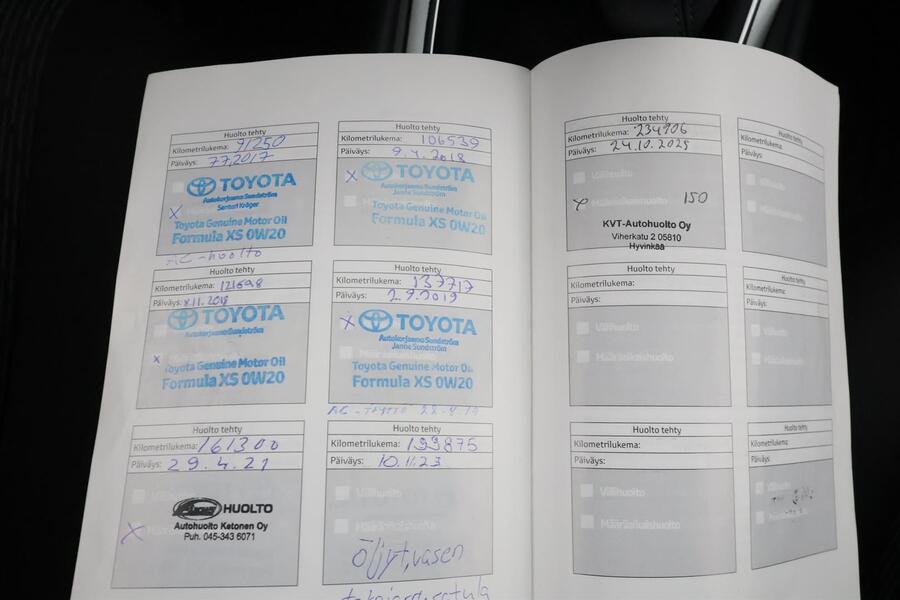 Huolto tehty
Kilometrilukema: 91250
Päiväys: 7.7.2017
TOYOTA
Autokorjaamo Sundström
Santeri Kröger
Toyota Genuine Motor Oil
Formula XS 0W20
AC-huolto
Huolto tehty
Kilometrilukema: 106539
Päiväys: 9.4.2018
TOYOTA
Autokorjaamo Sundström
Janne Sundström
Toyota Genuine Motor Oil
Formula XS 0W20
Huolto tehty
Kilometrilukema: 121698
Päiväys: 8.11.2018
TOYOTA
Autokorjaamo Sundström
Toyota Genuine Motor Oil
Formula XS 0W20
Huolto tehty
Kilometrilukema: 137717
Päiväys: 2.9.2019
TOYOTA
Autokorjaamo Sundström
Janne Sundström
Toyota Genuine Motor Oil
Formula XS 0W20
AC-TÄYTTÖ 22.8.19
Huolto tehty
Kilometrilukema: 161300
Päiväys: 29.4.21
HUOLTO
Autohuolto Ketonen Oy
Puh. 045-343 6071
Huolto tehty
Kilometrilukema: 193875
Päiväys: 10.11.23
Välihuolto
Määräaikaishuolto
öljyt, vasen
Huolto tehty
Kilometrilukema: 234906
Päiväys: 24.10.2025
Välihuolto
Määräaikaishuolto 150
KVT-Autohuolto Oy
Viherkatu 2 05810
Hyvinkää
Huolto tehty
Kilometrilukema:
Päiväys:
Välihuolto
Määräaikaishuolto
Huolto tehty
Kilometrilukema:
Päiväys:
Välihuolto
Määräaikaishuolto
Huolto tehty
Kilometrilukema:
Päiväys:
Välihuolto
Määräaikaishuolto
Huolto tehty
Kilometrilukema:
Päiväys:
Välihuolto
Määräaikaishuolto
Huolto tehty
Kilometrilukema:
Päiväys: